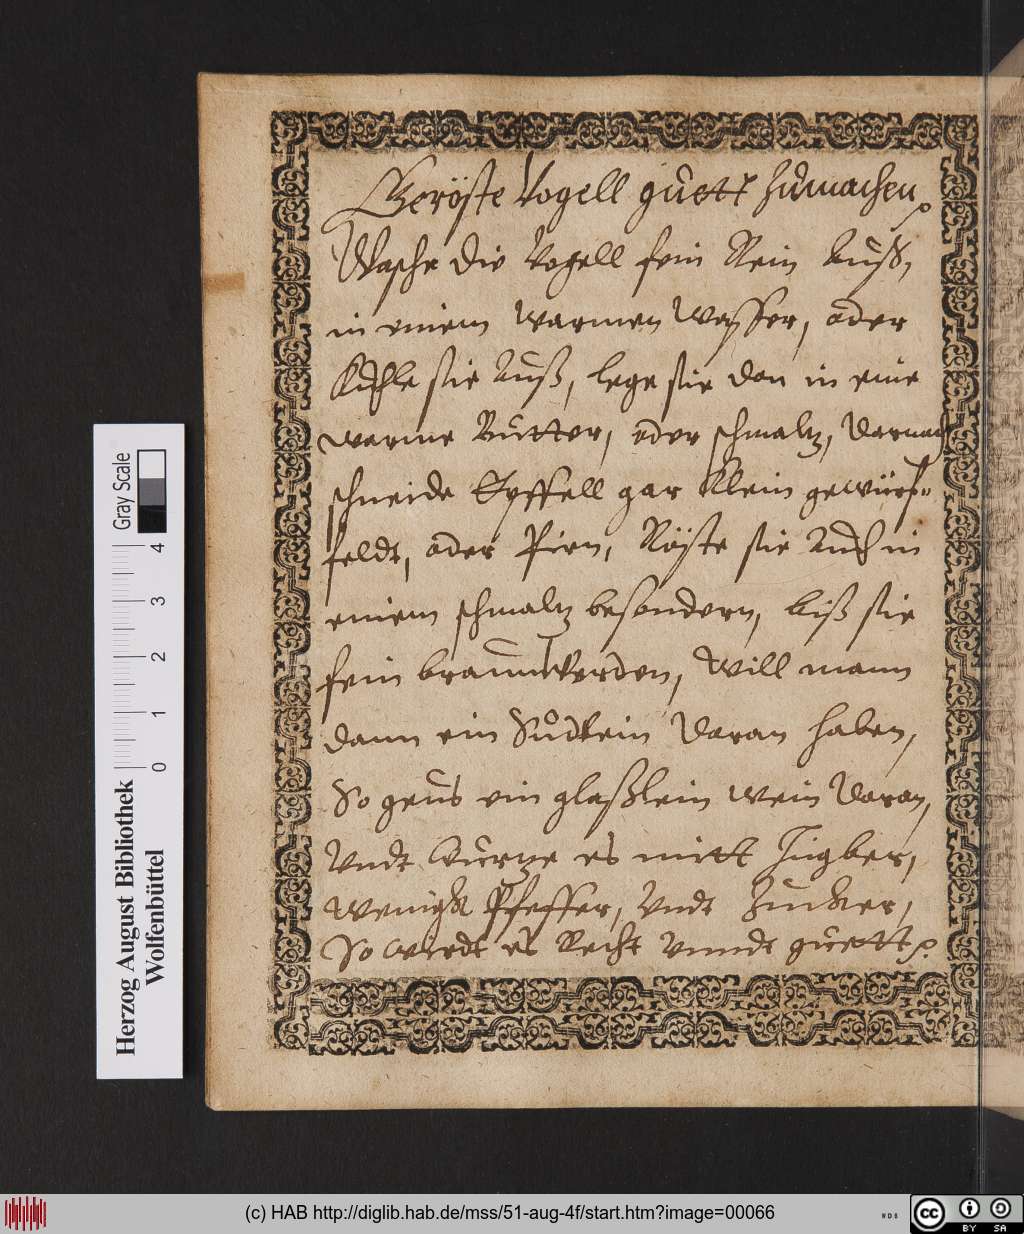 Geröste Vogell guett zumachen
Wasche die Vogell fein Rein Auß,
in einem warmen Wasser, oder
Kuhle sie Auß, lege sie dan in eine
warme Butter, oder schmaltz, Darnach
schneide Epffell gar klein gewürf-
feldt, oder Pirn, Röste sie Auch in
einem schmaltz besondern, biß sie
fein braun Werden, Will mann
dann ein Sůdlein Daran haben,
So geus ein glaßlein wein Daran,
Vndt Wurtze es mitt Jngber,
wenigk Pfeffer, Vndt Zucker,
So wirdt es Recht Vnndt guett
Gray Scale
0 1 2 3 4
Herzog August Bibliothek
Wolfenbüttel
(c) HAB http://diglib.hab.de/mss/51-aug-4f/start.htm?image=00066
WDB
cc BY SA